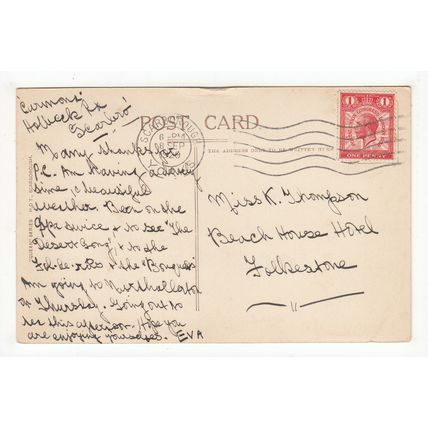 "Carmona"
Holbeck Rd
Scarboro'
Many thanks for
P.C. Am having a lovely
time, & beautiful
weather. Been on the
Spa twice & to see "The
Desert Song" & to the
Fol-de-rols & the "Bouquets
Am going to Northallerton
on Thursday. Going out to
tea this afternoon. Hope you
are enjoying yourselves. EVA
POST CARD.
THE ADDRESS ONLY TO BE WRITTEN HERE
SCARBOROUGH
6 PM
SEP
1929
YORKS
1 1
ONE PENNY
Miss K. Thompson
Beach House Hotel
Folkestone